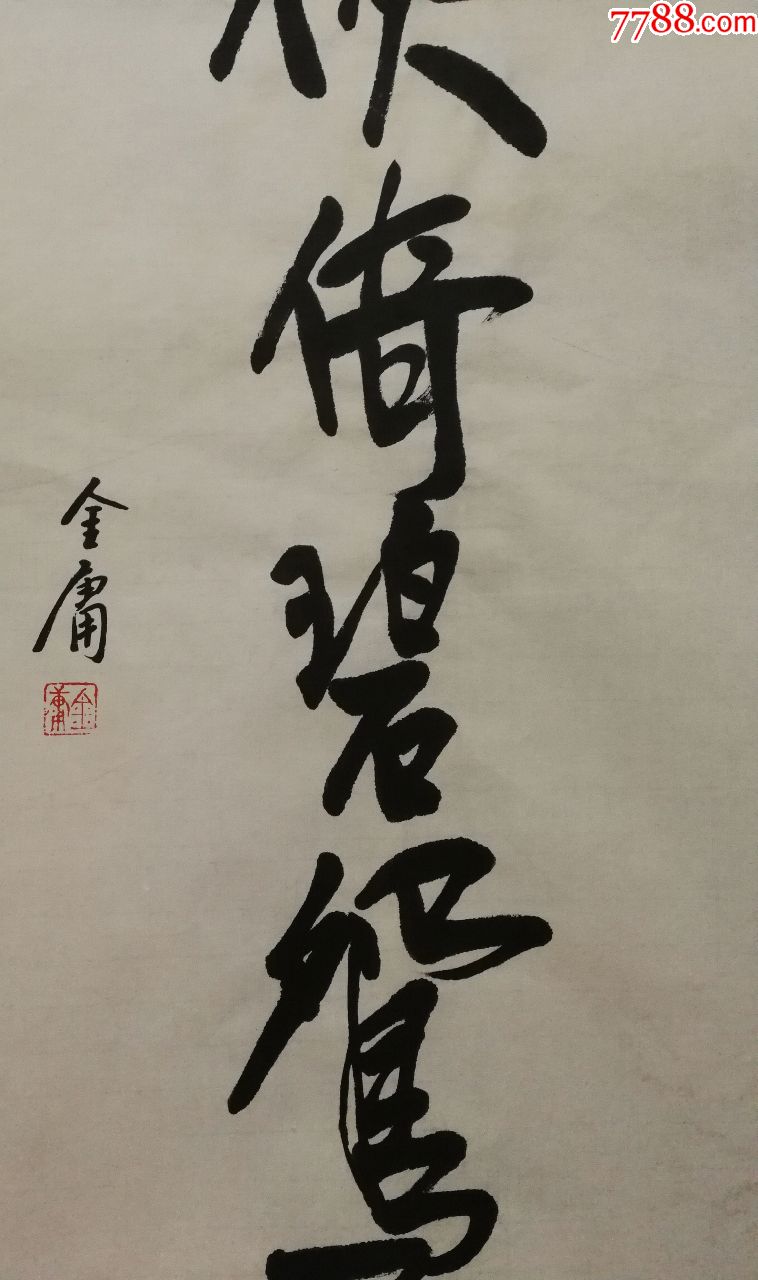 7788.com
侠倚碧鸳
金庸
金庸